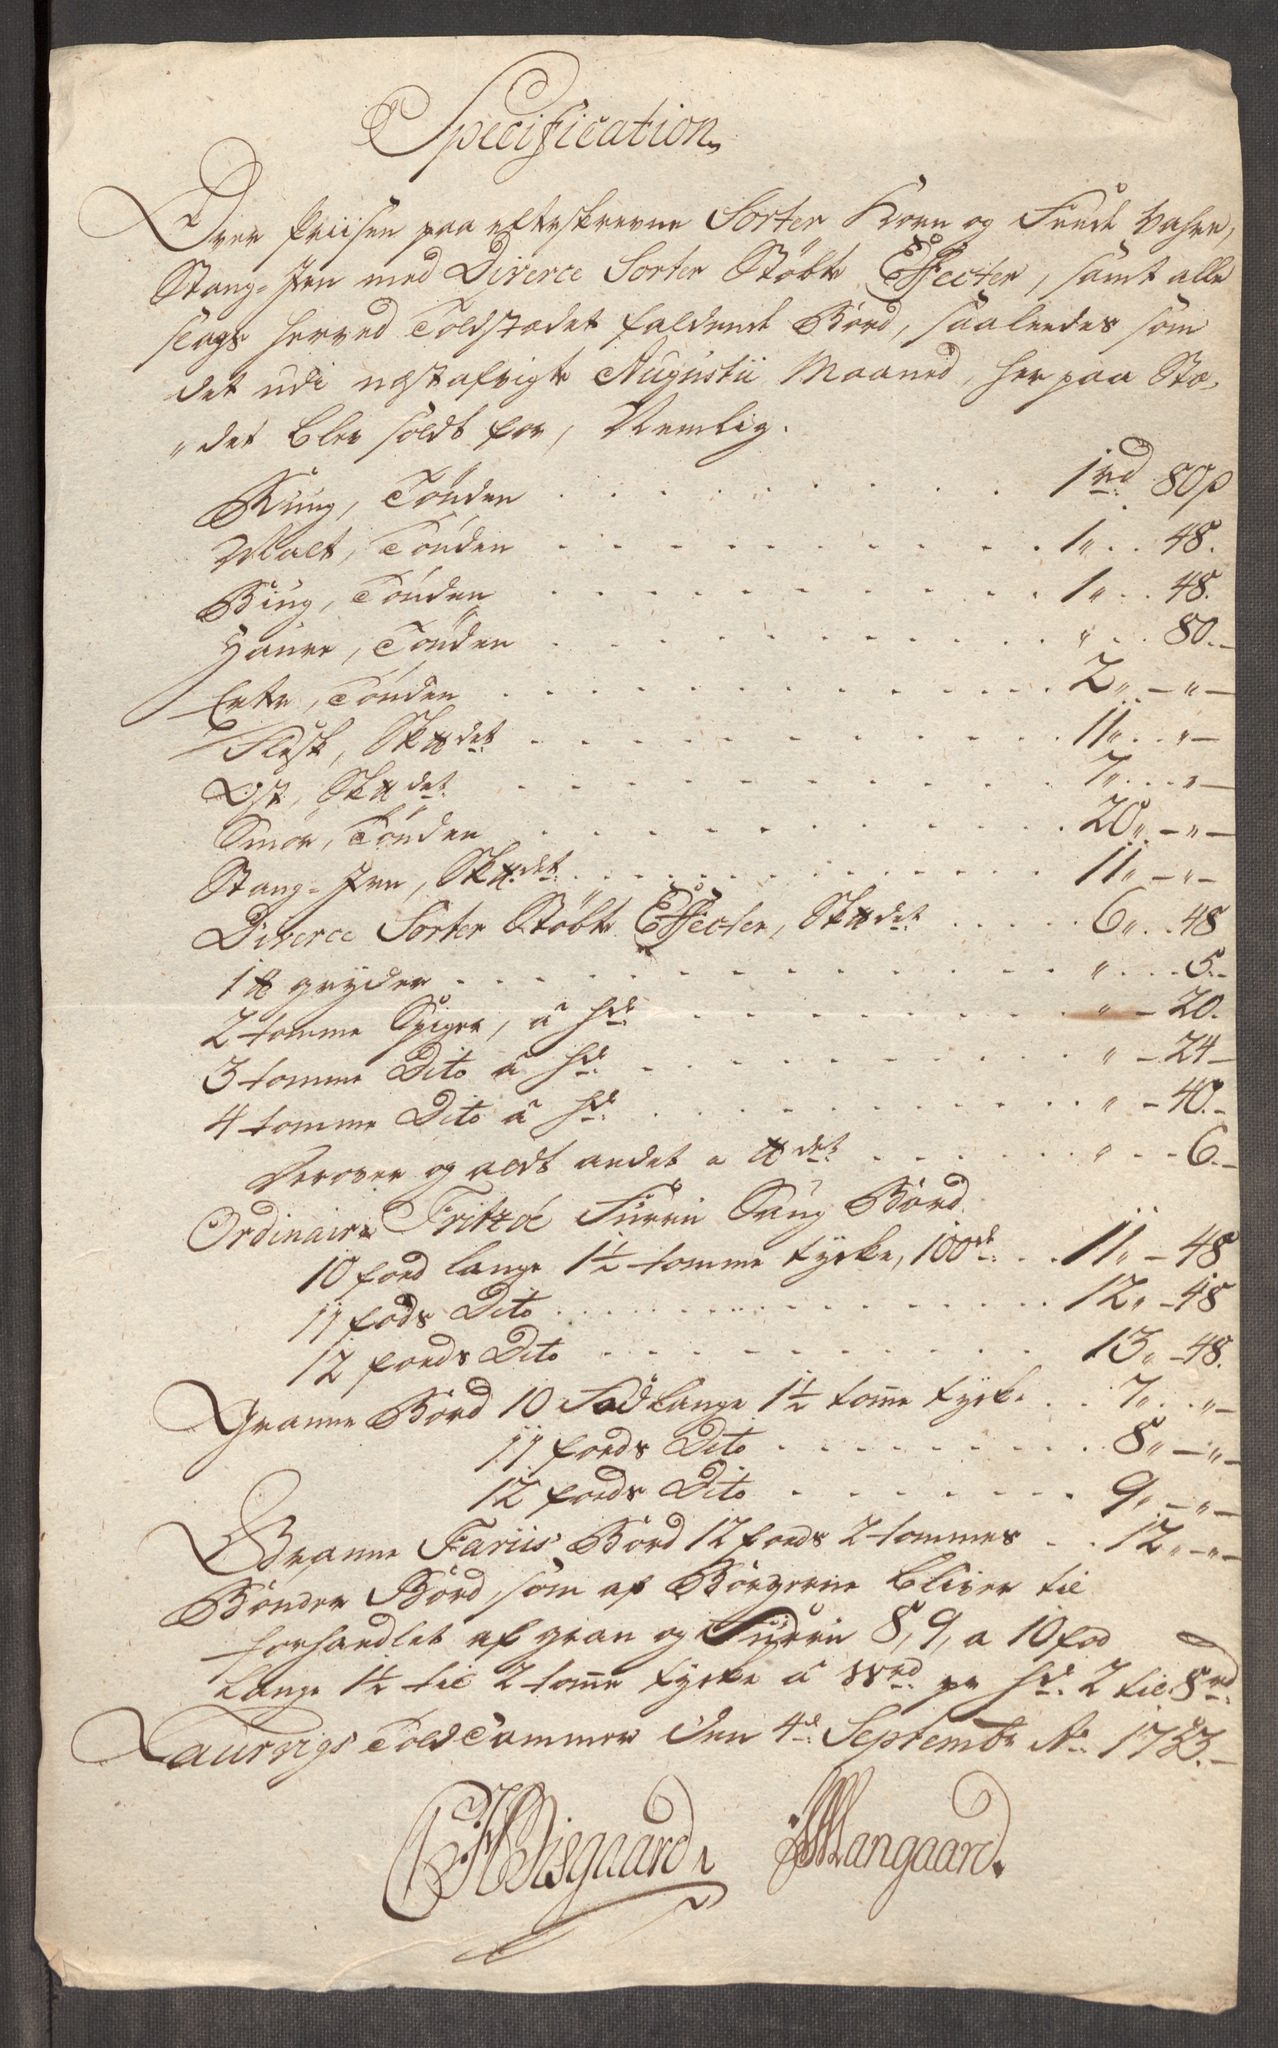 Specification
Over Priisen paa efterskrevne Sorter Korn og Feede Vahre,
Stang-Jern med Diverce Sorter Støbte Effecter, samt alle
slags herved Toldstædet faldende Bord, saaledes som
det udi næstafvigte Augustii Maaned, her paa Stæ-
"det blev soldt for, Nemlig.
Rug, Tönden . . . 1 rd. 80 β
Malt, Tönden . . . 1 " . . 48.
Biug, Tönden . . . 1 " . . 48.
Haure, Tönden . . . " . . 80. -
Erter, Tönden . . . 2 " - " -
Flesk, Sk℔det . . . 11 " . . " -
Ost, Sk℔det . . . 7 " . . " -
Smör, Tönden . . . 20 " - " -
Stang-Jern, Sk℔det . . . 11 " - " -
Diverce Sorter Støbte Effecter, Sk℔det . . . 6 " . . 48
1 ℔ gryder . . . " . . . 5. -
2 tomme Spiger, á hde . . . " - 20.
3 tomme Dito á hde . . . " - 24 -
4 tomme Dito á hde . . . " - 40. -
Verover og aldt andet a ℔det . . . " . . 6. -
Ordinaire Fritzøe Furru Saug Bord
10 foed lange 1½ tomme tycke, 100de . . . 11 " - 48
11 fods Dito . . . 12 " - 48
12 foeds Dito . . . 13 " - 48.
Granne Bord 10 Fod lange 1½ tomme tycke . . 7 " . . " -
11 foeds Dito . . . 8 " - " -
12 foeds Dito . . . 9 " - " -
Granne Fariis Bord 12 foeds 2 tommes . . 12 " - " -
Bönder Bord, som af Borgerne bliver til
forhandlet af gran og Furru 8, 9, a 10 fod
lange 1½ til 2 tomme tycke á pr hde. 2 til 8 rd.
Laurvigs Told Cammer den 4de Septembr Ao 1783. -
Wisgaard Mangaard.